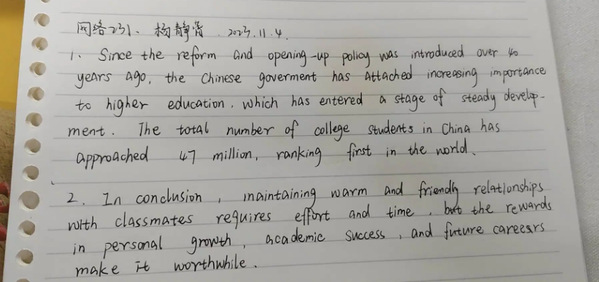 网络231. 杨静
2023.11.4.
1. Since the reform and opening-up policy was introduced over 40
years ago, the Chinese goverment has attached increasing importance
to higher education. which has entered a stage of steady develop-
ment. The total number of college students in China has
approached 47 million, ranking first in the world.
2. In conclusion, maintaining warm and friendly relationships
with classmates requires effort and time, but the rewards
in personal growth, academic success, and future careers
make it worthwhile.